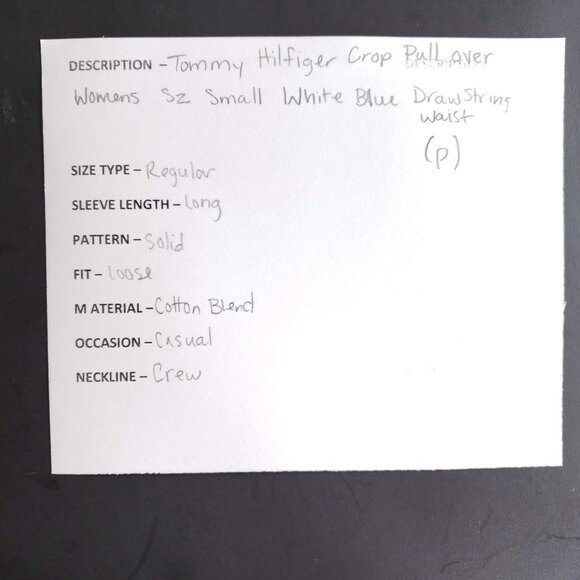 DESCRIPTION – Tommy Hilfiger Crop Pull over
Womens Sz Small White Blue Drawstring
waist
(p)
SIZE TYPE – Regular
SLEEVE LENGTH – Long
PATTERN – Solid
FIT – Loose
M ATERIAL – Cotton Blend
OCCASION – Casual
NECKLINE – Crew